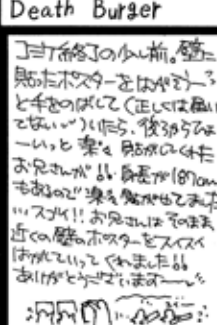 Death Burger
コミケ終了の少し前。壁に
貼ったポスターをはがそう～
と手をのばして(正しくは届い
てない)いたら、後ろからひょ
ーいっと楽々貼がしてくれた
お兄さんが!!身長が187cm
もあるので楽々剥がせてました
…スゴイ!!お兄さんはそのまま
近くの壁のポスターをスイスイ
はがしていってくれました!!
ありがとうございますー